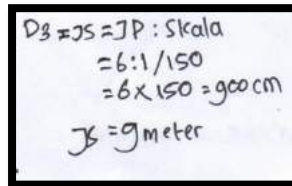 D3 = JS = JP : Skala
= 6 : 1/150
= 6 x 150 = 900 cm
JS = 9 meter